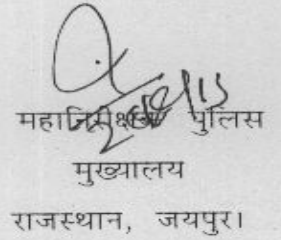 महानिरीक्षक पुलिस
मुख्यालय
राजस्थान, जयपुर।